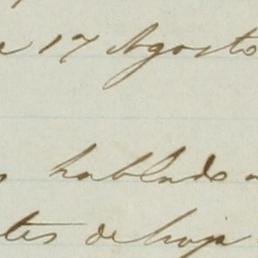 17 Agosto
hablado
tes de hoja